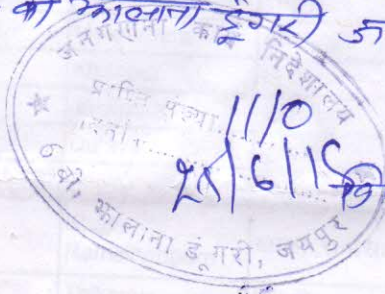 का झालाना डूंगरी
जनगणना कार्य निदेशालय
प्राप्ति संख्या 1110
दिनांक
6 बी, झालाना डूंगरी, जयपुर